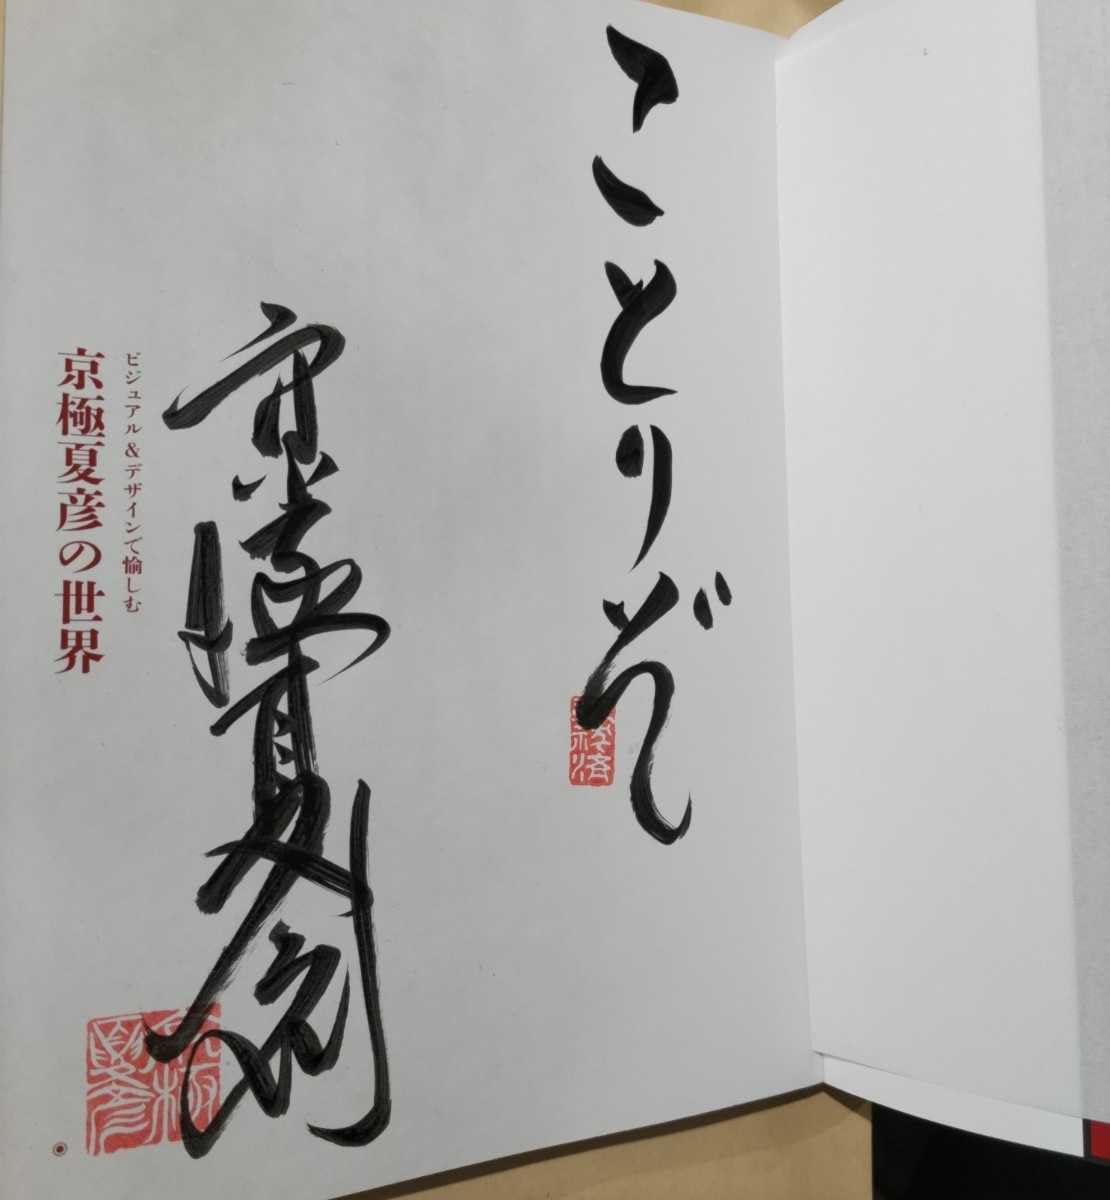 ことりぞ
京極夏彦
ビジュアル＆デザインで愉しむ
京極夏彦の世界
京極夏彦